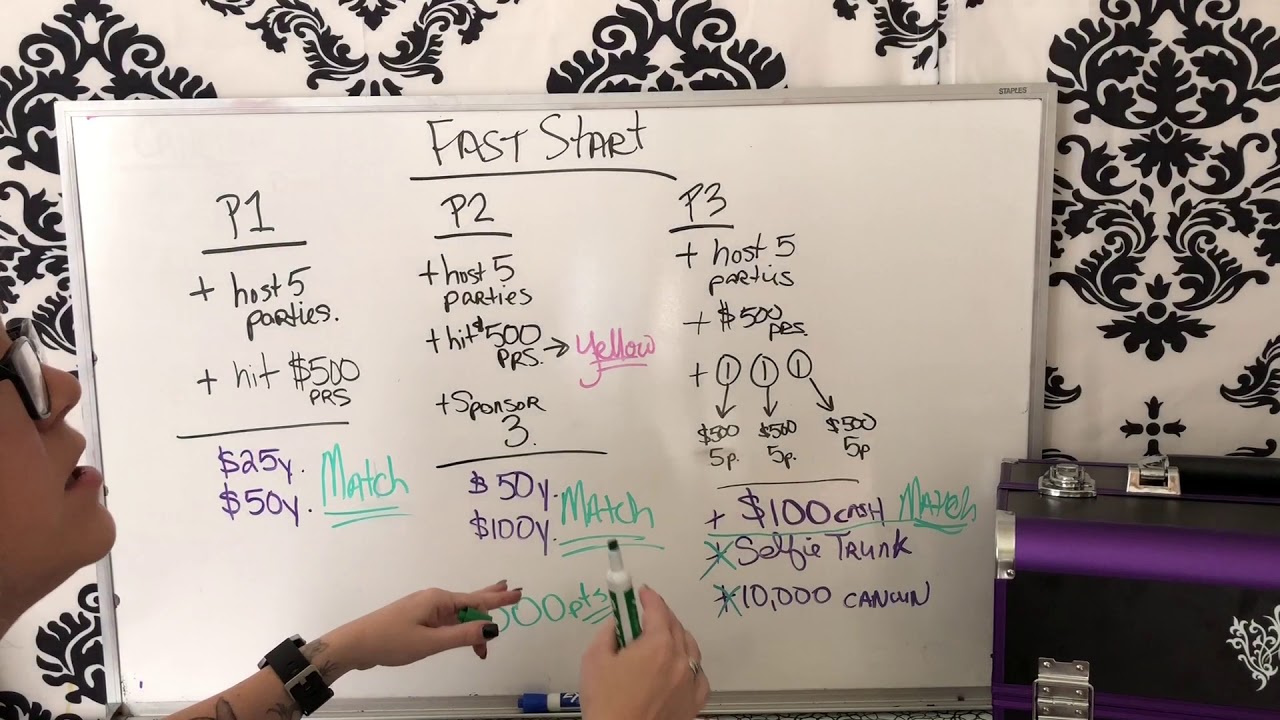 STAPLES
FAST START
P1
+ host 5
parties.
+ hit $500
PRS
$25y. Match
$50y.
P2
+ host 5
parties
+ hit $500
PRS. → Yellow
+ Sponsor
3.
$50y. Match
$100y.
000pts
P3
+ host 5
partiis
+ $500
PRS.
+ 1 1 1
$500 $500 $500
5p. 5p. 5p.
+ $100 CASH Match
* Selfie Trunk
* 10,000 CANCUN